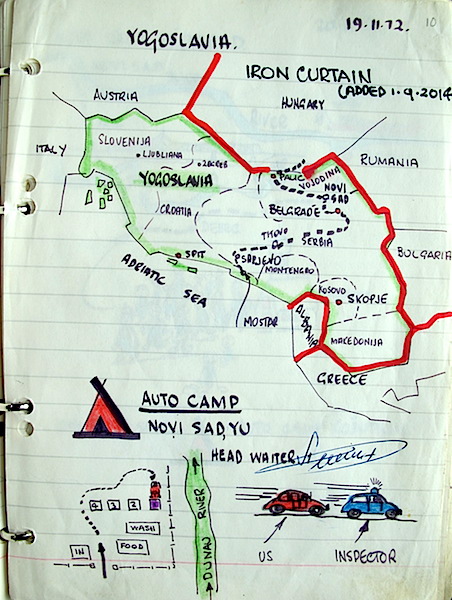 19.11.72. 10
YOGOSLAVIA.
IRON CURTAIN
(ADDED 1.9.2014
AUSTRIA
HUNGARY
ITALY
SLOVENIJA
LJUBLIANA
ZGREB
RUMANIA
PALIC
VOJODINA
YOGOSLAVIA
NOVI
SAD
CROATIA
BELGRADE
TITOVO
SERBIA
BULGARIA
SPIT
PSARJEVO
ADRIATIC
SEA
MONTENGRO
KOSOVO
SKOPJE
MOSTAR
ALBANIA
MACEDONIJA
GREECE
AUTO CAMP
NOVI SAD, YU
HEAD WAITER
4 3 2
WASH
FOOD
IN
DUNAU RIVER
US
INSPECTOR